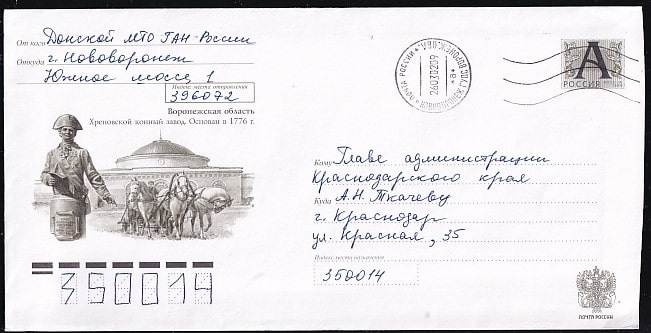 От кого Донской МТО ГАН России
Откуда г. Нововоронеж
Южное шоссе 1
Индекс места отправления
396072
Воронежская область
Хреновской конный завод. Основан в 1776 г.
ПОЧТА РОССИИ
НОВОВОРОНЕЖ
26010209
А
РОССИЯ
Кому Главе администрации
Краснодарского края
Куда А.Н. Ткачеву
г. Краснодар
ул. Красная, 35
Индекс места назначения
350014
350014
ПОЧТА РОССИИ